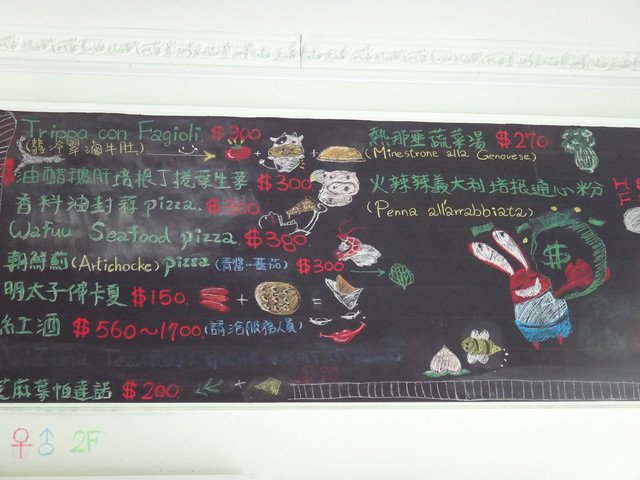 Trippa con Fagioli $300
油醋鵝肝培根丁捲葉生菜 $300
香料油封蒜 pizza $350
Wafuu Seafood pizza $380
朝鮮薊(Artichocke) pizza (青醬+蕃茄) $300
明太子佛卡夏 $150 + =
紅酒 $560~1700 (請洽服務人員)
芝麻葉帕達諾 $200 +
熱那亞蔬菜湯 $270
(Minestrone alla Genovese)
火辣辣義大利培根通心粉
(Penna all'arrabbiata)
$
♀ ♂ 2F